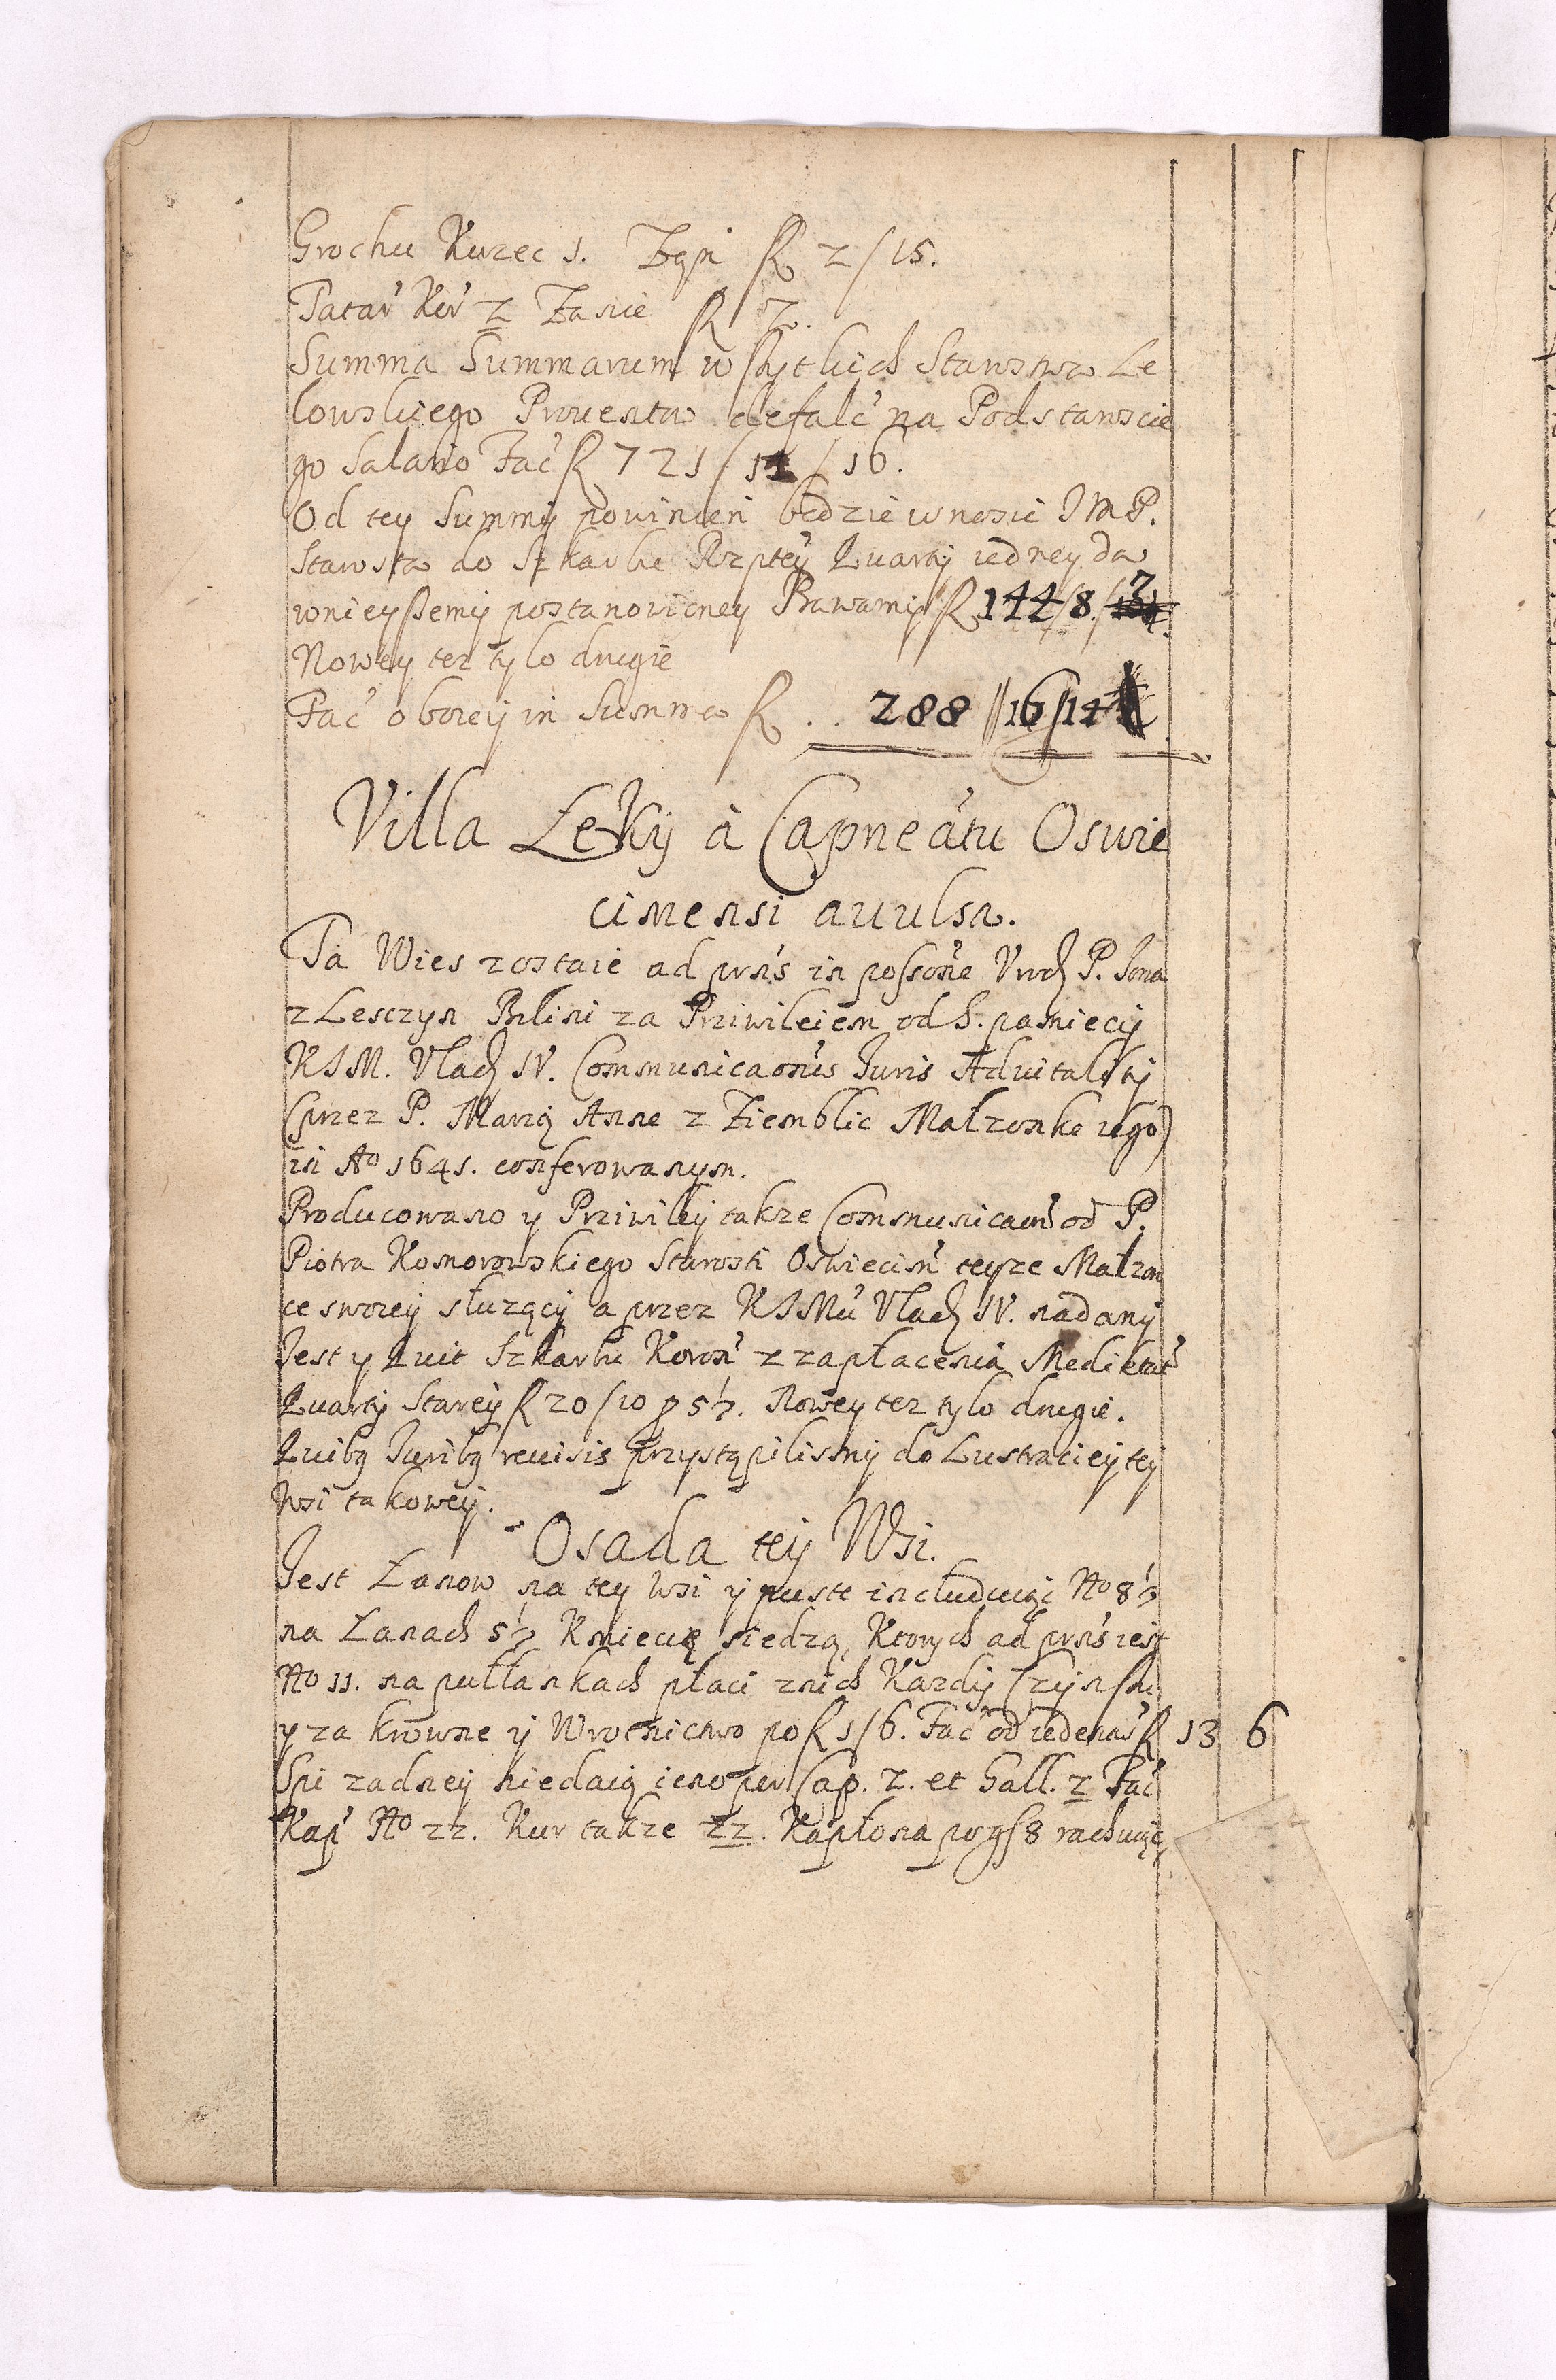 Grochu Kurec 1. Zgni R 2/15.
Tatar Kur 2 Zanie R 2.
Summa Summarum wszytkich Starostwa Le
lowskiego Prouentow defalc na Podstaroscie
go Salario Fac R 721/11/16.
Od tey Summy powinien będzie wnosic JMP.
Starosta do Szkarbu Rzptey Quarty iedney da
wnieyszemy postanowioney Prawamy R 144/8/2
Nowey tez tylo drugie
Fac oboiey in Summa R .. 288//16/14
Villa Łęky à Capneatu Oswie
cimensi auulsa.
Ta Wies zostaie ad prns in possone Vrodz P. Jona
z Lesczyn Bilini za Priwileiem od S. pamiecy
KJM. Vlad IV. Communicaonis Juris Aduitality
(przez P. Maryą Anne z Ziemblic Małzonke iego)
in Ao 1641. conferowanym.
Producowano y Priwiley takze Communicaoni od P.
Piotra Komorowskiego Starosti Oswiecim teyze Małzon
ce swoiey słuzący a przez KJMu Vlad IV. nadany
Jest y Quit Szkarbu Koron z zapłacenia Medietat
Quarty Starey R 20/10 ρ 5½. Nowey tez tylo drugie.
Quibq Juribq reuisis przystąpilismy do Lustraciey tey
Wsi takowey.
Osada tey Wsi.
Jest Łanow na tey Wsi y puste includuiąc No 8½
na Łanach 5½ Kmiecie siedzą, Ktorych ad prns iest
No 11. na pułłankach płaci znich Kazdy Czynszu
y za krowne y Wrotnictwo po R 1/6. Fac od iedenas R 13 6
Spi zadney niedaią ieno per Cap. 2. et Gall. 2 Fac
Kap No 22. Kur takze 22. Kapłona po gs 8 rachuiąc